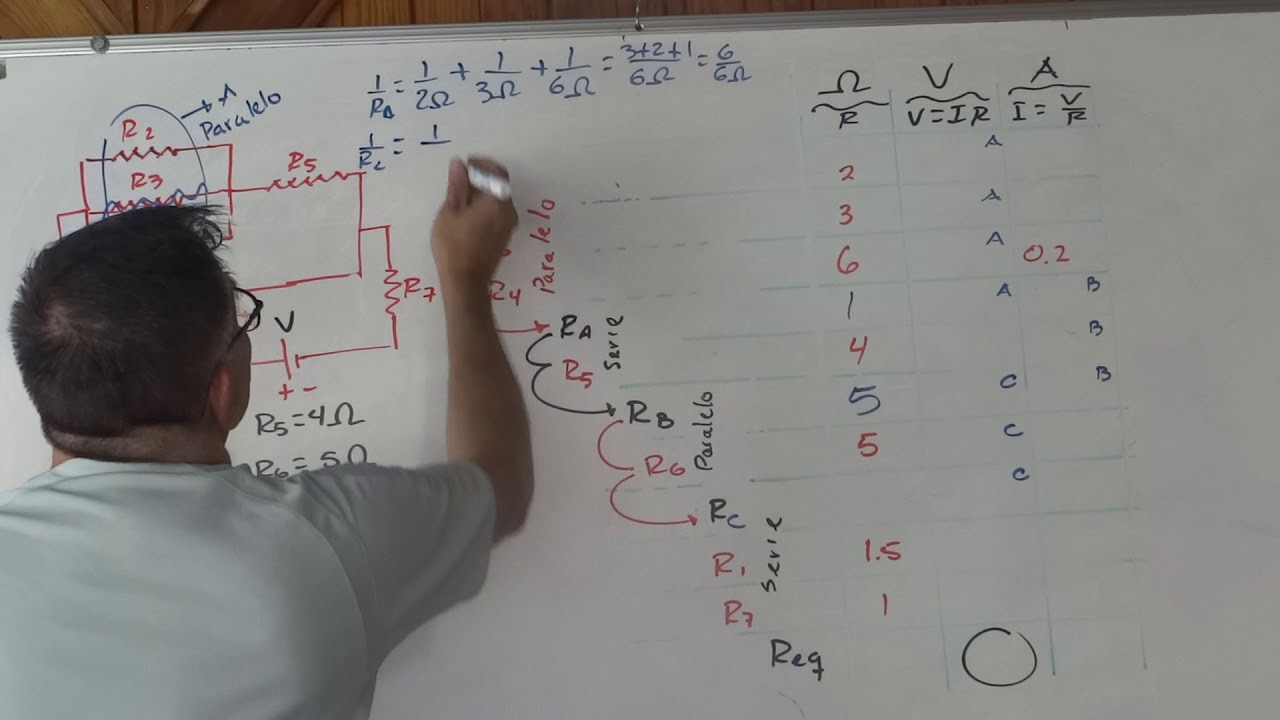 1/RA = 1/2Ω + 1/3Ω + 1/6Ω = 3+2+1/6Ω = 6/6Ω
1/RC = 1/
A
Paralelo
R2
R3
R5
R7
V
+ -
R5 = 4Ω
R6 = 5Ω
R4
Paralelo
RA
R5
Serie
RB
R6
Paralelo
RC
R1
R7
Serie
Req
Ω V A
R V = I R I = V/R
A
2 A
3 A
6 0.2
1 A B
4 B
5 C B
5 C
C
1.5
1